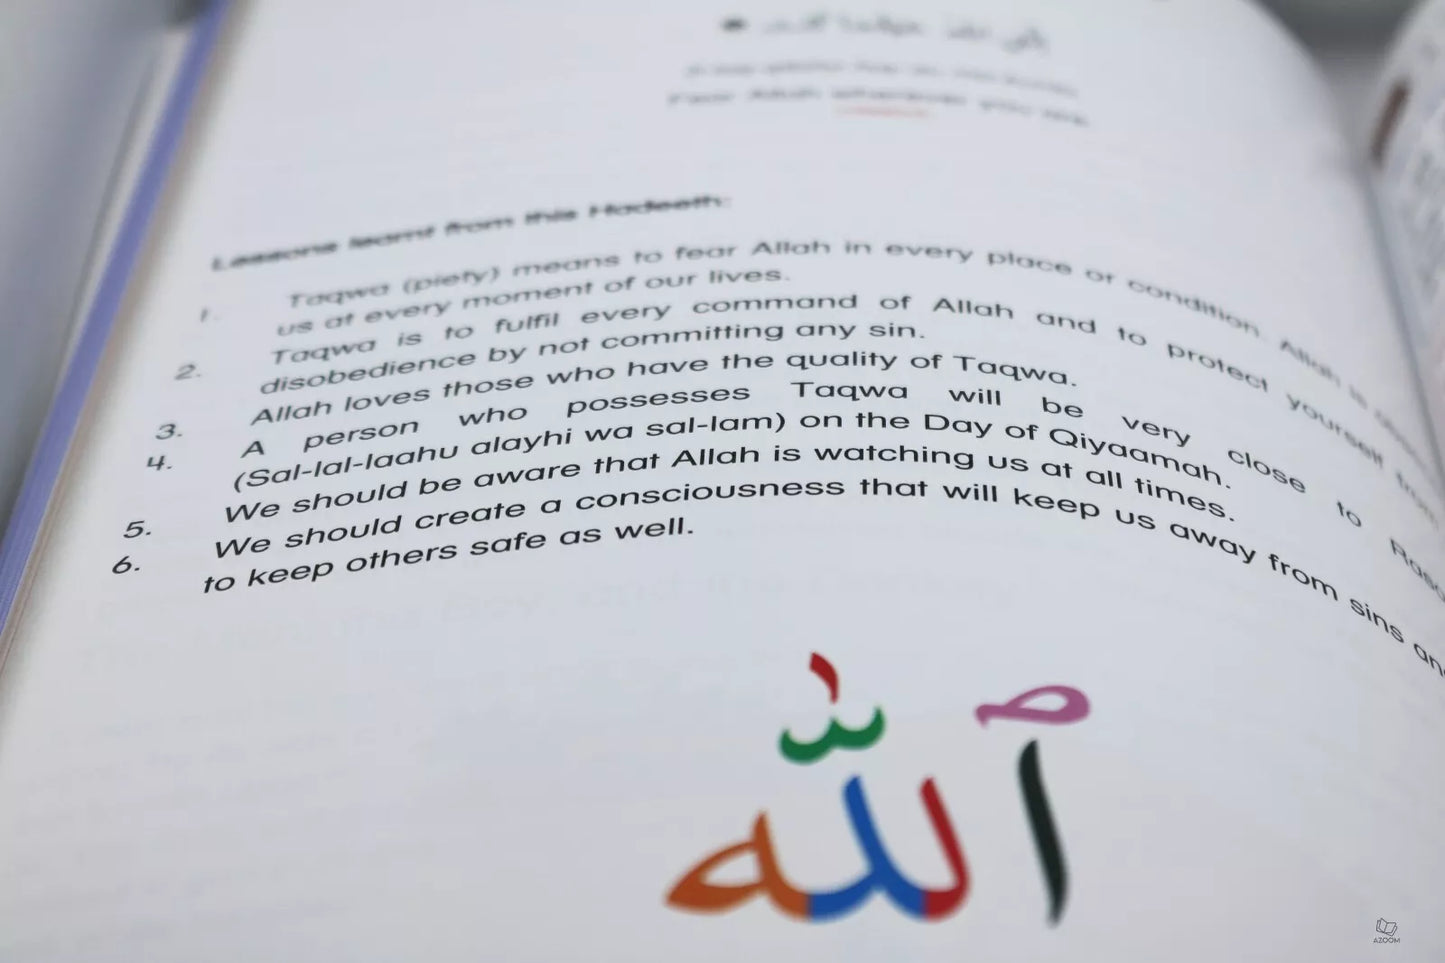 Fear Allah wherever you are
Lessons learnt from this Hadeeth:
1. Taqwa (piety) means to fear Allah in every place or condition. Allah is
us at every moment of our lives.
2. Taqwa is to fulfil every command of Allah and to protect yourself from
disobedience by not committing any sin.
3. Allah loves those who have the quality of Taqwa.
4. A person who possesses Taqwa will be very close to
(Sal-lal-laahu alayhi wa sal-lam) on the Day of Qiyaamah.
5. We should be aware that Allah is watching us at all times.
6. We should create a consciousness that will keep us away from sins
to keep others safe as well.
ٱللّٰه
AZOOM